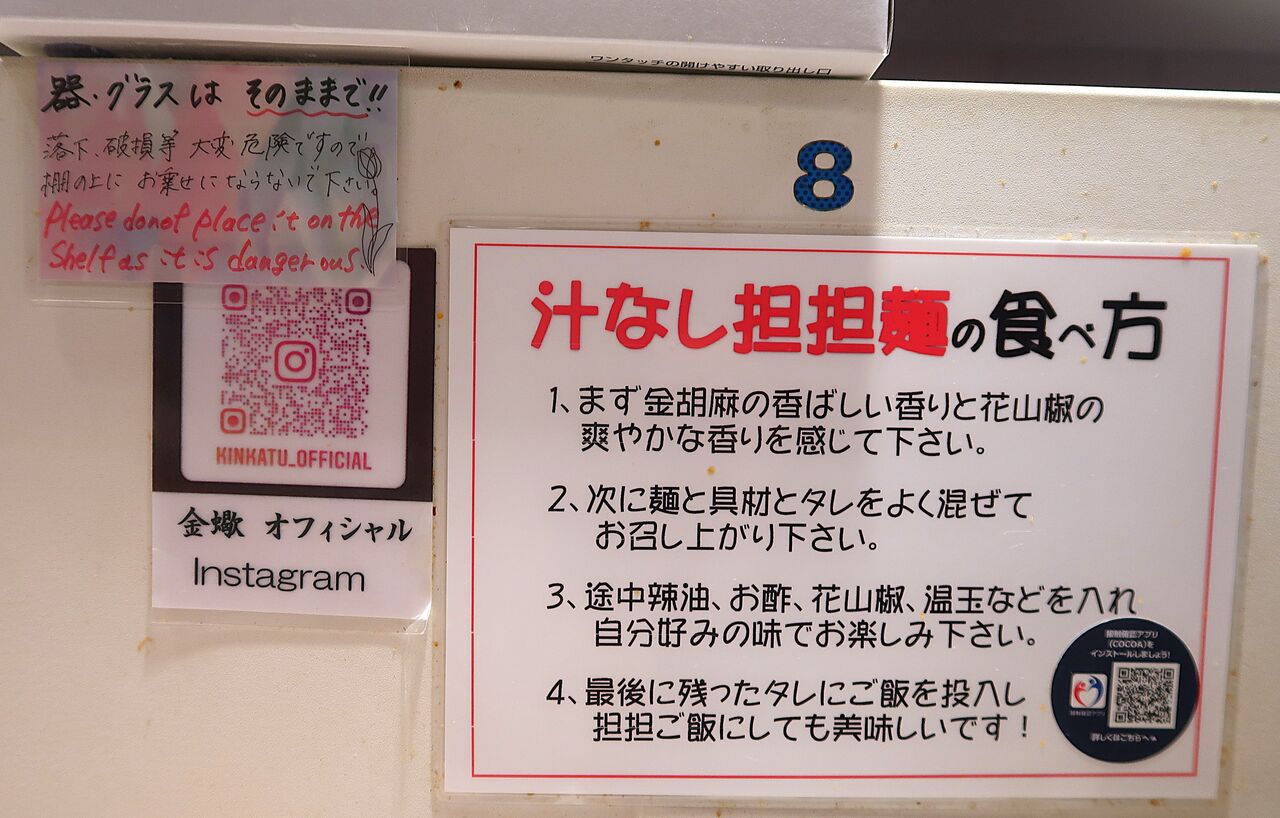 ワンタッチの開けやすい取り出し口
器・グラスは そのままで!!
落下、破損等 大変危険ですので
棚の上に お乗せにならないで下さい。
Please donot place it on the
Shelf as it is dangerous.
KINKATU_OFFICIAL
金蠍 オフィシャル
Instagram
8
汁なし担担麺の食べ方
1、まず金胡麻の香ばしい香りと花山椒の
爽やかな香りを感じて下さい。
2、次に麺と具材とタレをよく混ぜて
お召し上がり下さい。
3、途中辣油、お酢、花山椒、温玉などを入れ
自分好みの味でお楽しみ下さい。
4、最後に残ったタレにご飯を投入し
担担ご飯にしても美味しいです！
接触確認アプリ
(COCOA)を
インストールしましょう!
接触確認アプリ
詳しくはこちらへ